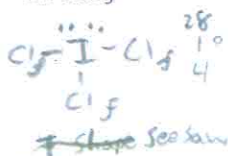 Cl - I - Cl 28
10
Cl 4
T Shape See Saw